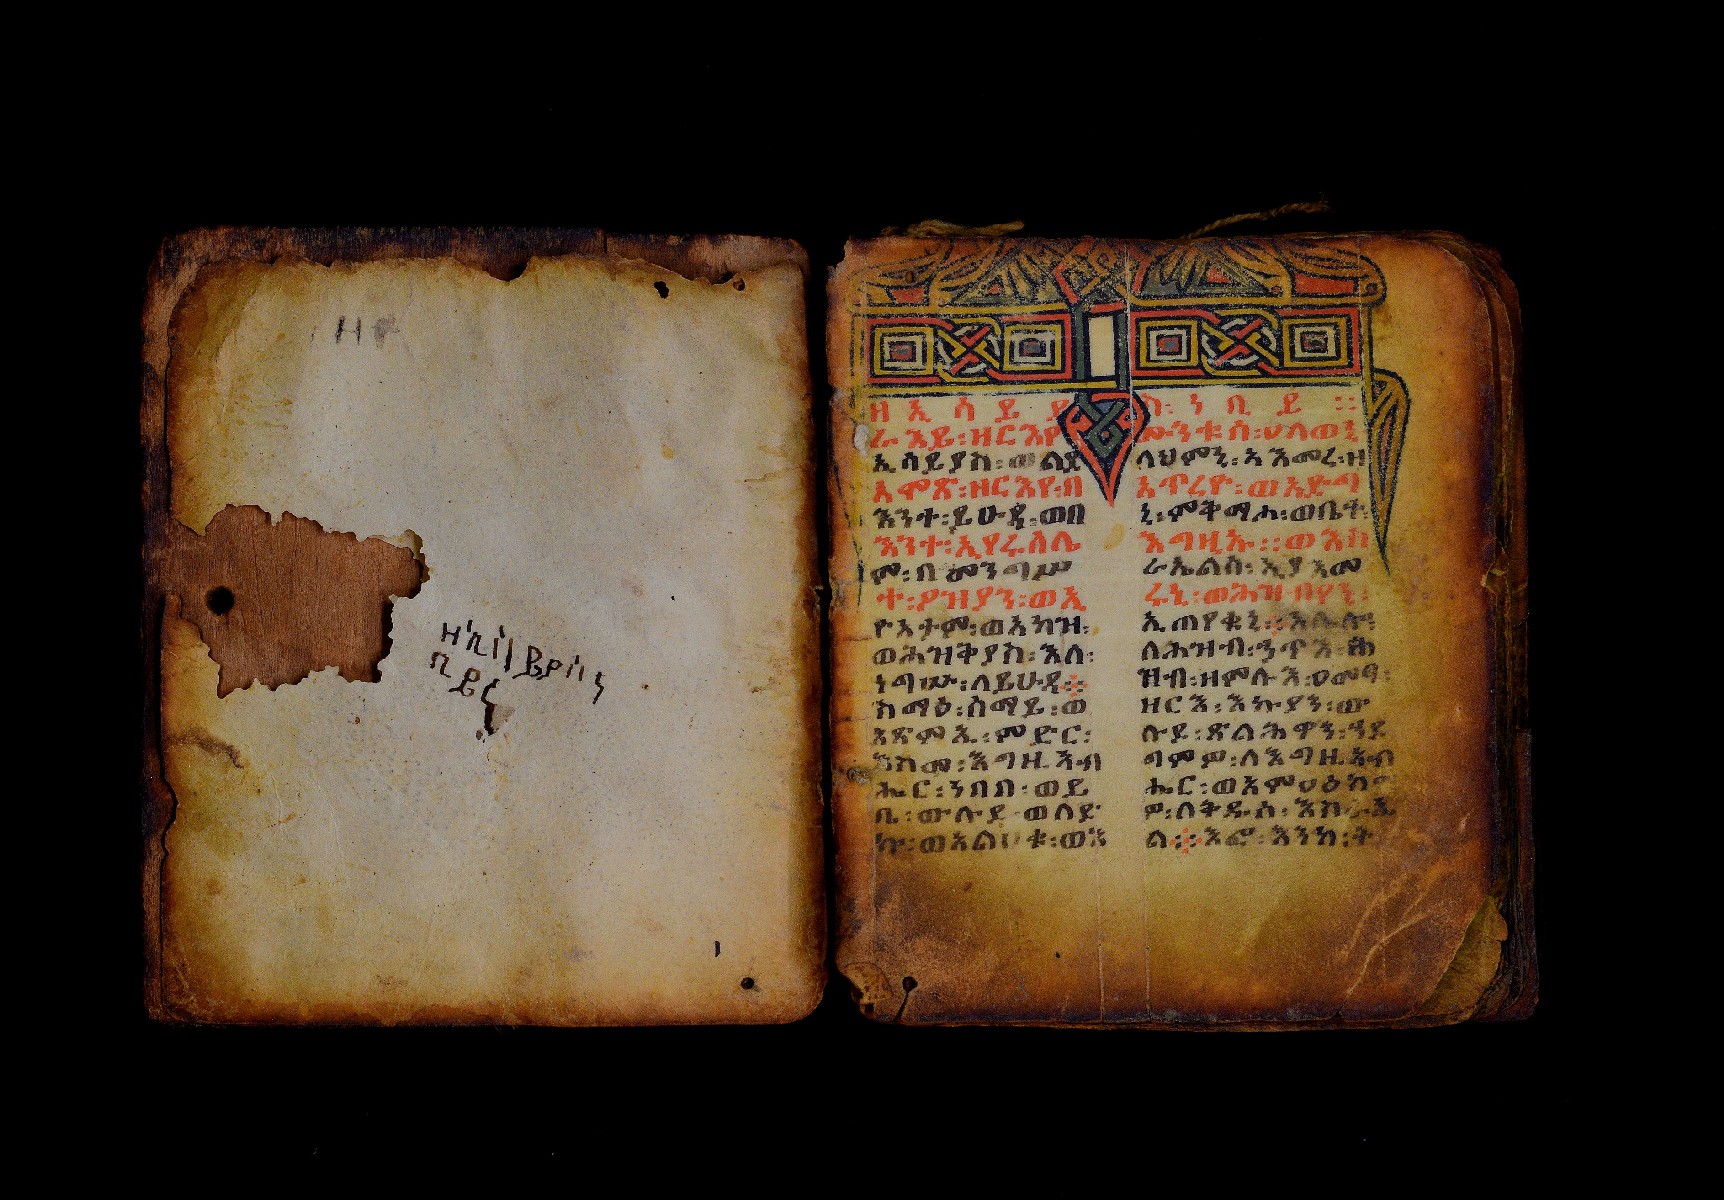 ዘኢሳይያስነ
ቢይ
ዘ ኢ ሳ ይ ያ ስ፡ ነ ቢ ይ ፡፡
ራእይ፡ዘርእየ
ኢሳይያስ፡ወልደ
አሞጽ፡ዘርእየ፡በ
እንተ፡ይሁዳ፡ወበ
እንተ፡ኢየሩሳሌ
ም፡በመንግሥ
ተ፡ዖዝያን፡ወኢ
ዮአታም፡ወአካዝ፡
ወሕዝቅያስ፡እለ፡
ነግሡ፡ለይሁዳ፨
ስማዕ፡ሰማይ፡ወ
አጽምኢ፡ምድር፡
እስመ፡እግዚአብ
ሔር፡ነበበ፡ወይ
ቤ፡ውሉደ፡ወለድ
ኩ፡ወአልሀቁ፡ወእ
ሙንቱሰ፡ሀለወኒ
ላህምኒ፡ኣእመረ፡ዘ
አጥረዮ፡ወአድግ
ኒ፡ምቅማሖ፡ወቤተ፡
እግዚኡ፡፡ወእስ
ራኤልሰ፡ኢያእመ
ሩኒ፡ወሕዝብየኒ፡
ኢጠየቁኒ፡፡አሌሎ፡
ለሕዝብ፡ኃጥእ፡ሕ
ዝብ፡ዘምሉእ፡ዐመፃ፡
ዘርእ፡እኩያን፡ው
ሉደ፡ጽልሕዋን፡ኀደ
ግምዎ፡ለእግዚአብ
ሔር፡ወአምዐዕክም
ዎ፡ለቅዱሰ፡እስራኤ
ል፨እፎ፡እንከ፡ት